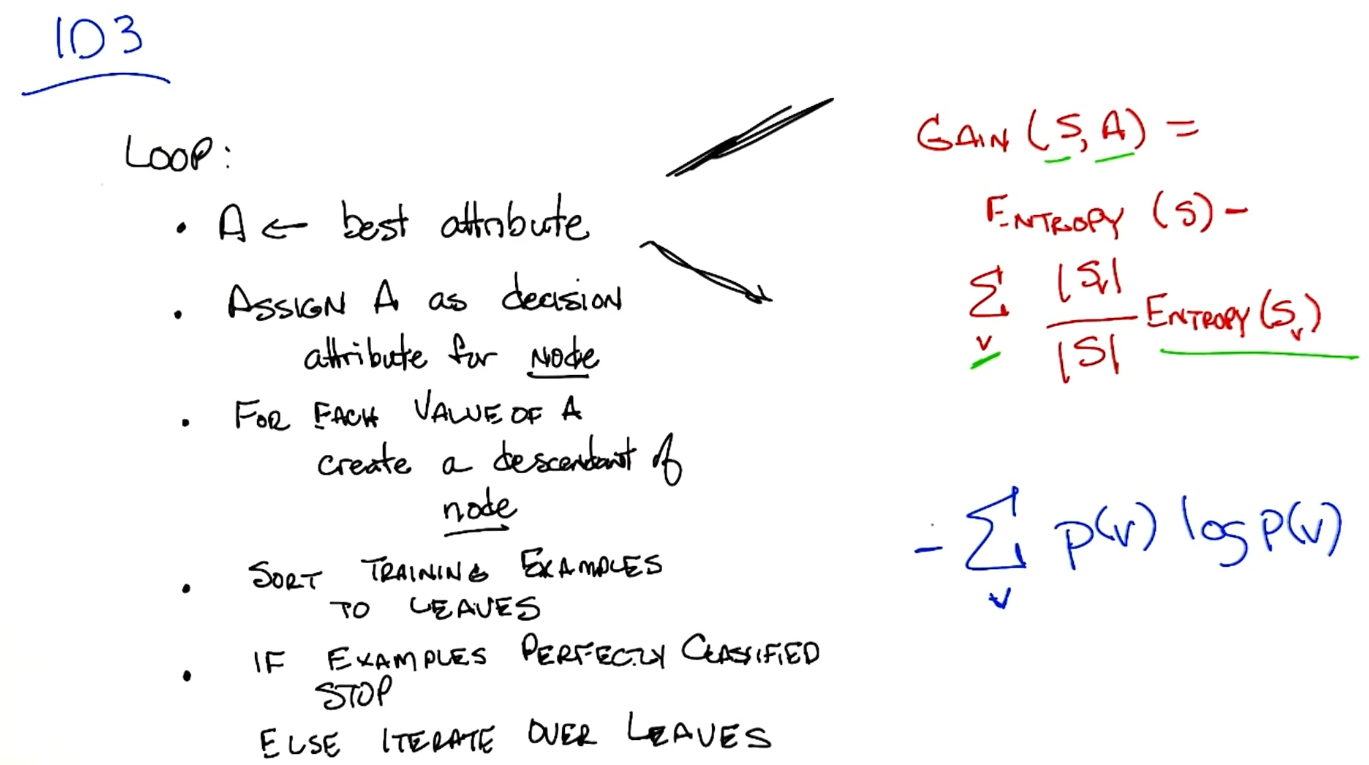 ID3
LOOP:
• A ← best attribute
• ASSIGN A as decision
attribute for NODE
• FOR EACH VALUE OF A
create a descendant of
node
• SORT TRAINING EXAMPLES
TO LEAVES
• IF EXAMPLES PERFECTLY CLASSIFIED
STOP
ELSE ITERATE OVER LEAVES
GAIN (S, A) =
ENTROPY (S) -
∑_v |S_v| / |S| ENTROPY(S_v)
- ∑_v p(v) log p(v)